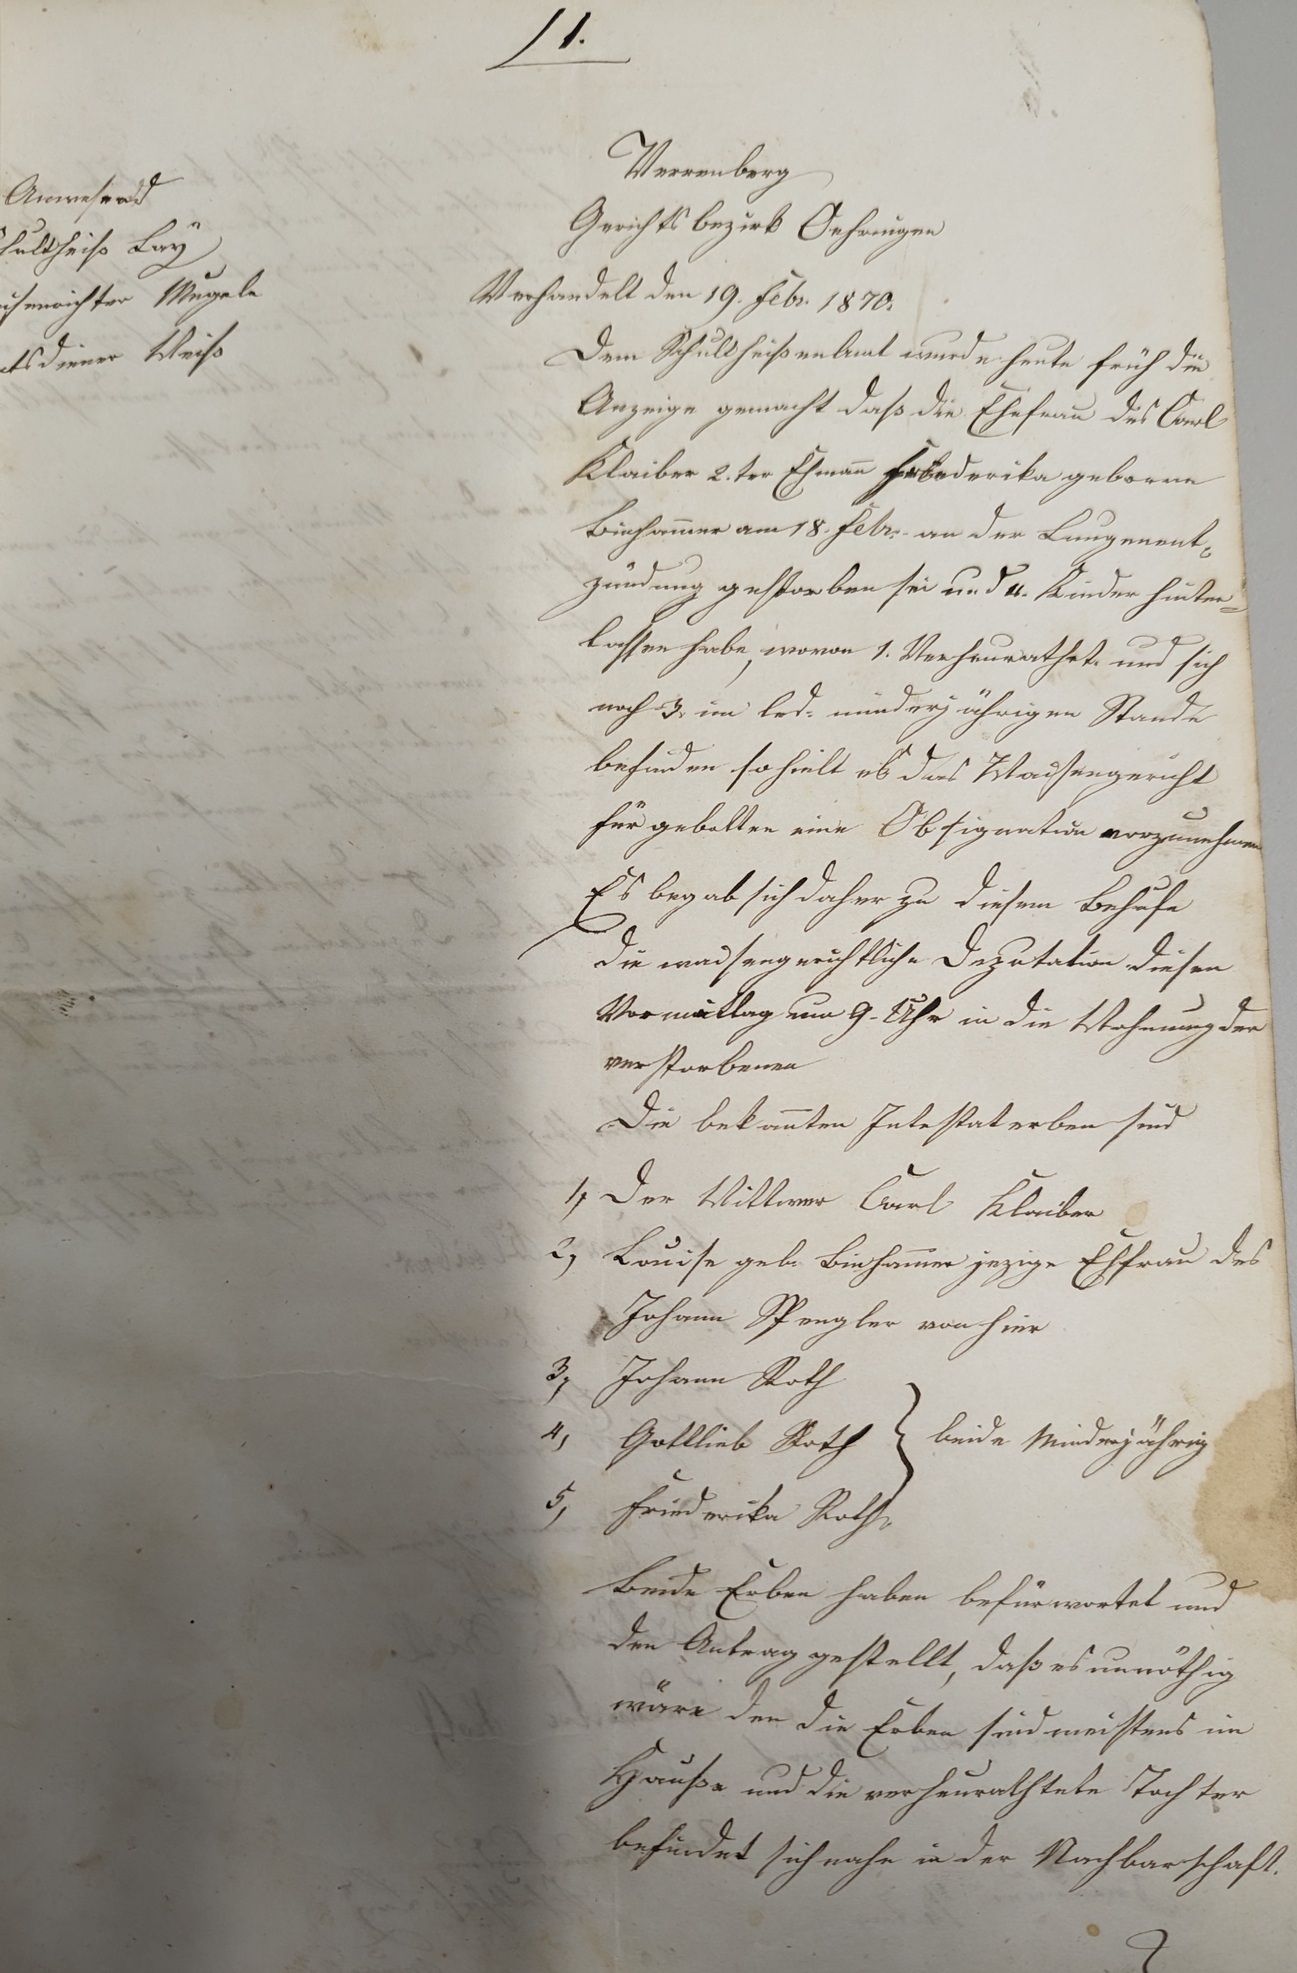 / 1.
Anwesend
Schuldheiß Lay
Waisenrichter Mugele
Amtsdiener Weiß
Verrenberg
Gerichtsbezirk Oehringen
Verhandelt den 19. Febr. 1870.
Dem Schuldheißenamt wurde heute früh die
Anzeige gemacht daß die Ehefrau des Carl
Klaiber 2.ter Ehmann Friederika geborne
Binhammer am 18. Febr. an der Lungenent-
zündung gestorben sei und 4. Kinder hinter-
lassen habe, wovon 1. Verheurathet. und sich
noch 3. im led. minderjährigen Stande
befinden so hielt es das Waisengericht
für gebotten eine Obsignation vorzunehmen
Es begab sich daher zu diesem Behufe
die waisengerichtliche Deputation diesen
Vormittag um 9. Uhr in die Wohnung der
verstorbenen
Die bekannten Intestaterben sind
1, Der Wittwer Carl Klaiber
2, Louise geb. Binhammer jezige Ehfrau des
Johann Spengler von hier
3, Johann Roth
4, Gottlieb Roth } beide Minderjährig
5, Friederika Roth,
Beide Erben haben befürwortet und
den Antrag gestellt, daß es unnöthig
wäre den die Erben sind meistens im
Hauße und die verheurathtete Tochter
befindet sich nahe in der Nachbarschaft.